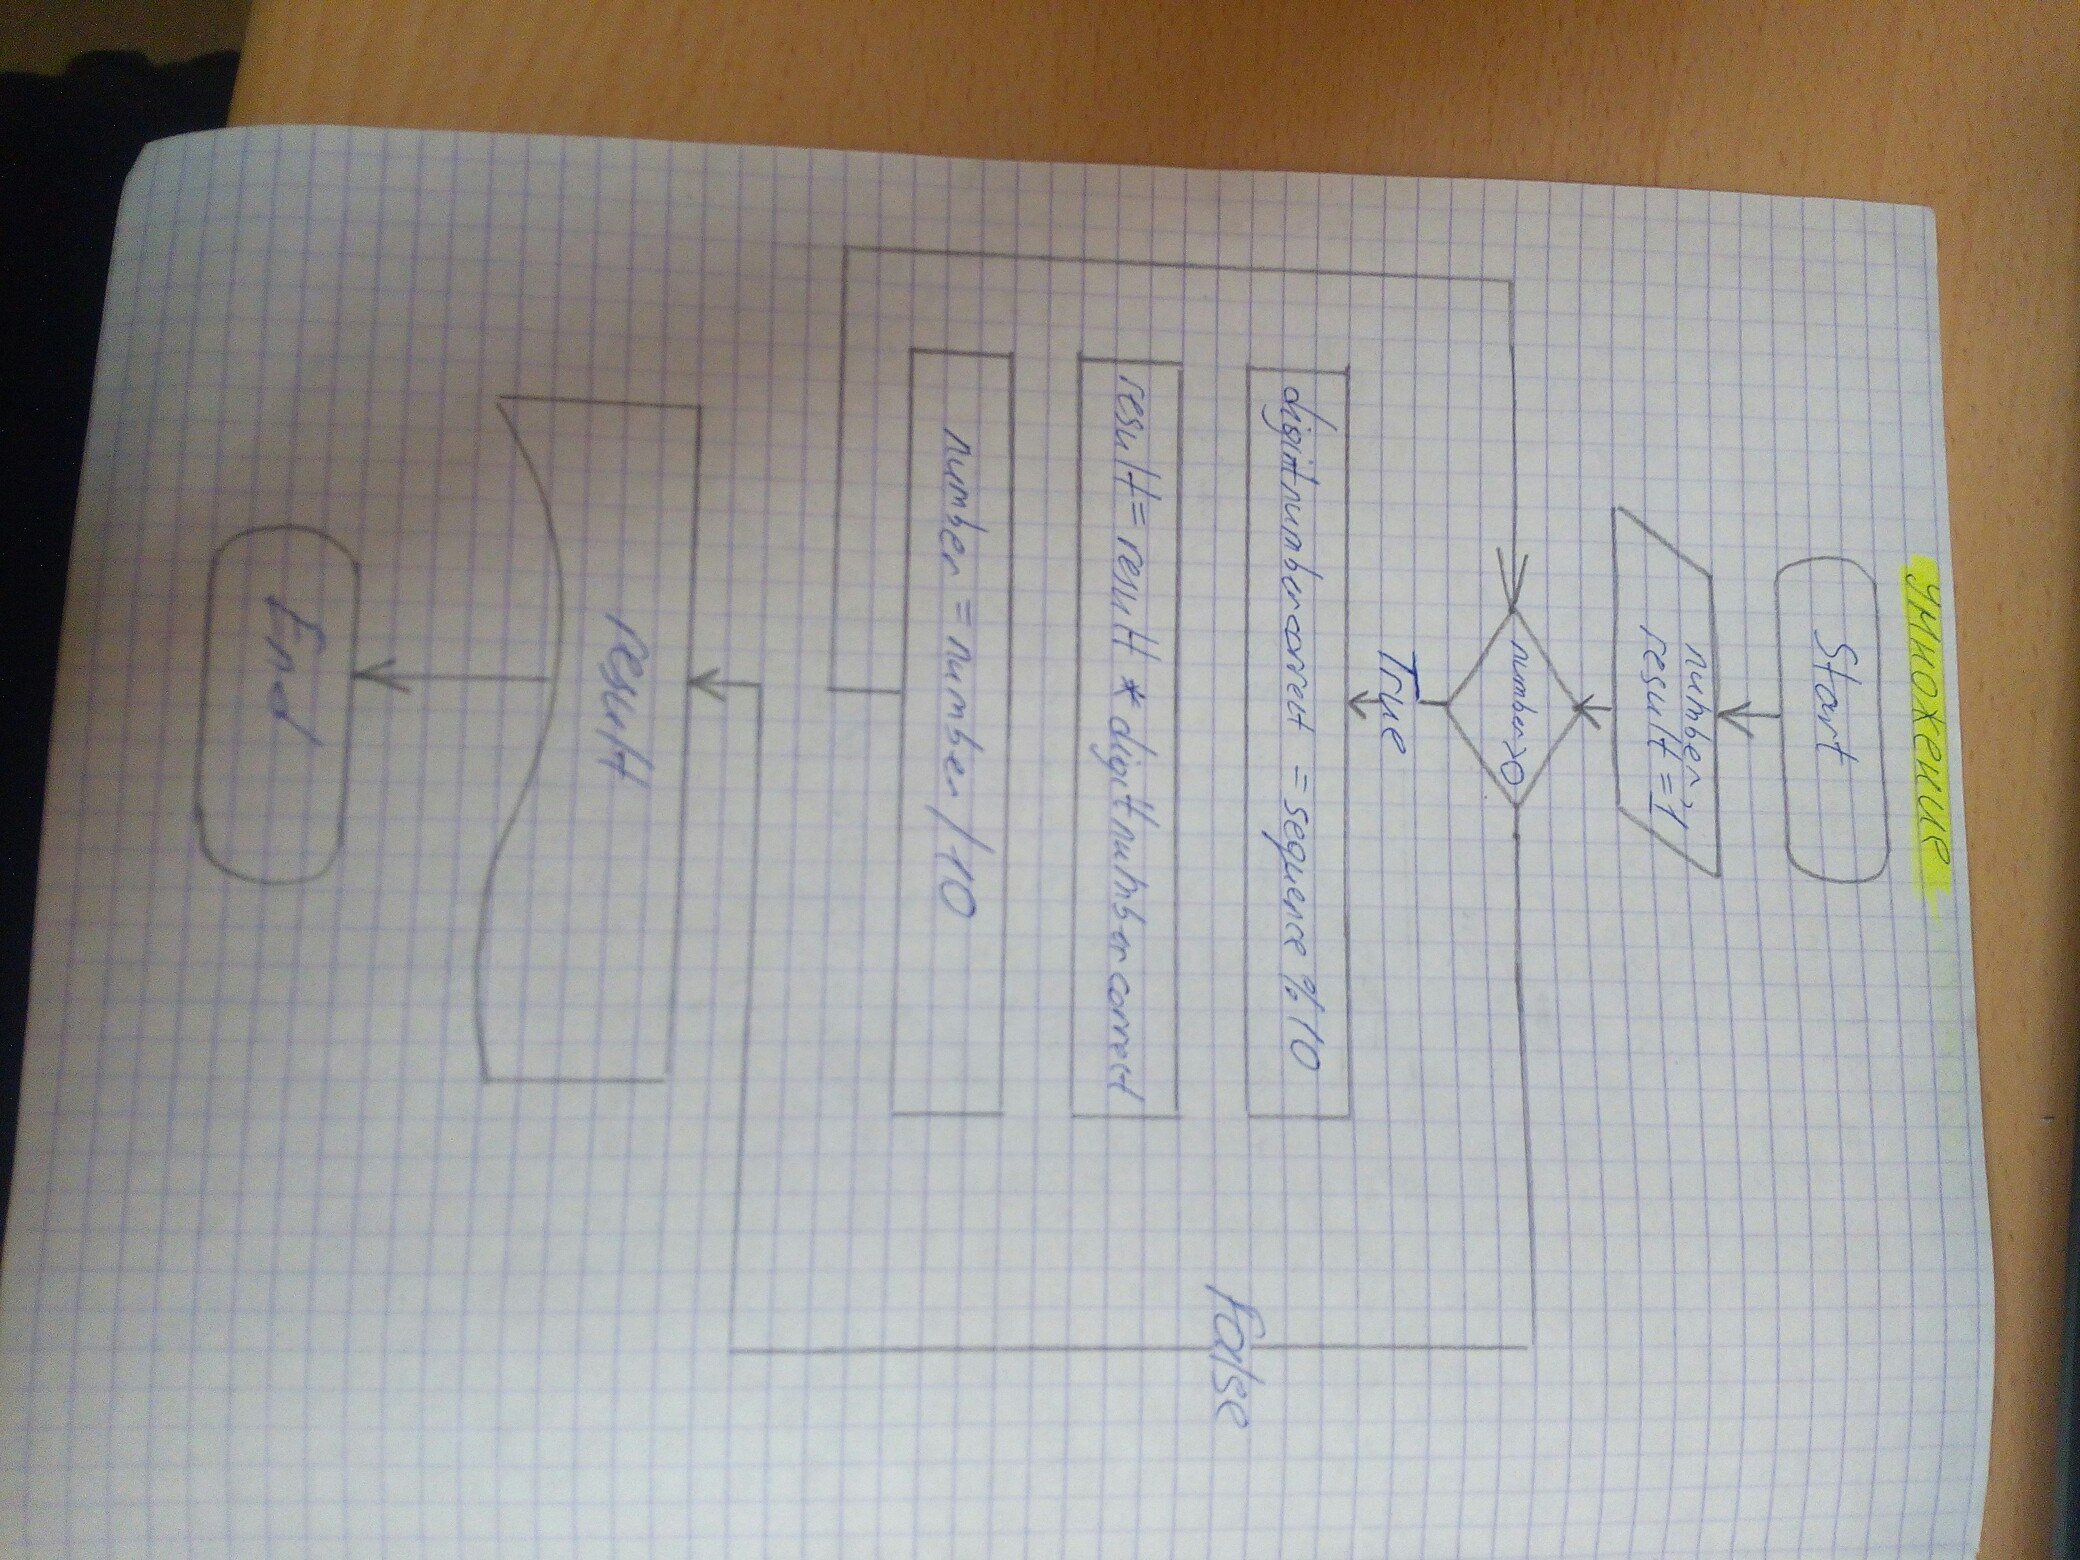 умножение
Start
number,
result = 1
number>0
True
digitnumbercorrect = sequence % 10
False
result = result * digitnumbercorrect
number = number / 10
result
End